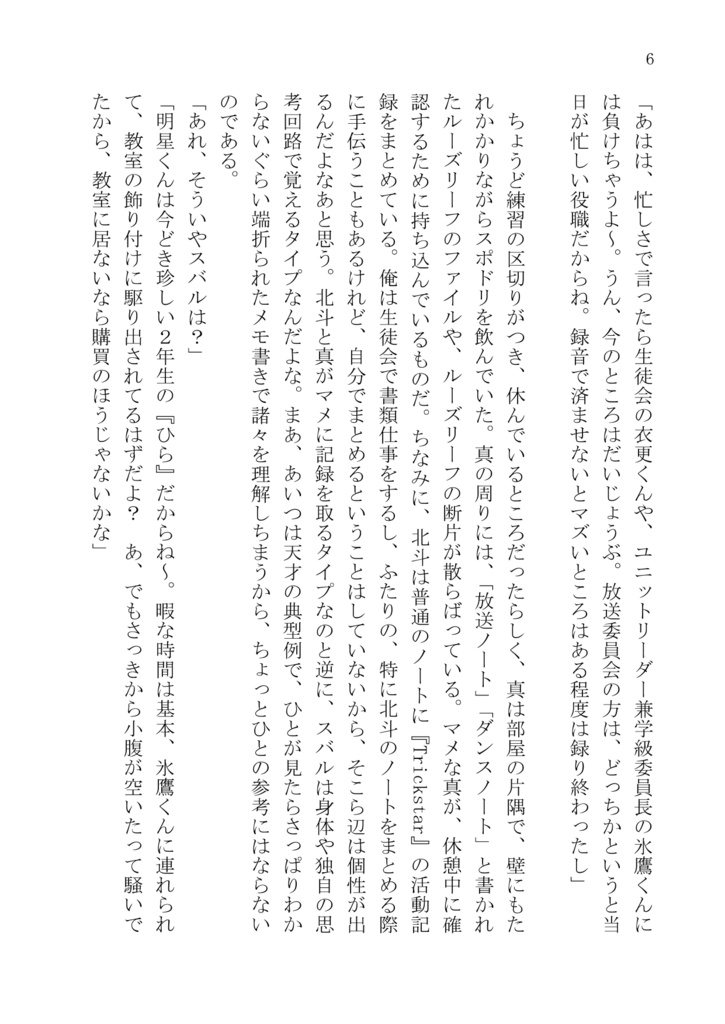 6
「あはは、忙しさで言ったら生徒会の衣更くんや、ユニットリーダー兼学級委員長の氷鷹くんに
は負けちゃうよ～。うん、今のところはだいじょうぶ。放送委員会の方は、どっちかというと当
日が忙しい役職だからね。録音で済ませないとマズいところはある程度は録り終わったし」
ちょうど練習の区切りがつき、休んでいるところだったらしく、真は部屋の片隅で、壁にもた
れかかりながらスポドリを飲んでいた。真の周りには、「放送ノート」「ダンスノート」と書かれ
たルーズリーフのファイルや、ルーズリーフの断片が散らばっている。マメな真が、休憩中に確
認するために持ち込んでいるものだ。ちなみに、北斗は普通のノートに『Trickstar』の活動記
録をまとめている。俺は生徒会で書類仕事をするし、ふたりの、特に北斗のノートをまとめる際
に手伝うこともあるけれど、自分でまとめるということはしていないから、そこら辺は個性が出
るんだよなあと思う。北斗と真がマメに記録を取るタイプなのと逆に、スバルは身体や独自の思
考回路で覚えるタイプなんだよな。まあ、あいつは天才の典型例で、ひとが見たらさっぱりわか
らないぐらい端折られたメモ書きで諸々を理解しちまうから、ちょっとひとの参考にはならない
のである。
「あれ、そういやスバルは？」
「明星くんは今どき珍しい２年生の『ひら』だからね～。暇な時間は基本、氷鷹くんに連れられ
て、教室の飾り付けに駆り出されてるはずだよ？　あ、でもさっきから小腹が空いたって騒いで
たから、教室に居ないなら購買のほうじゃないかな」